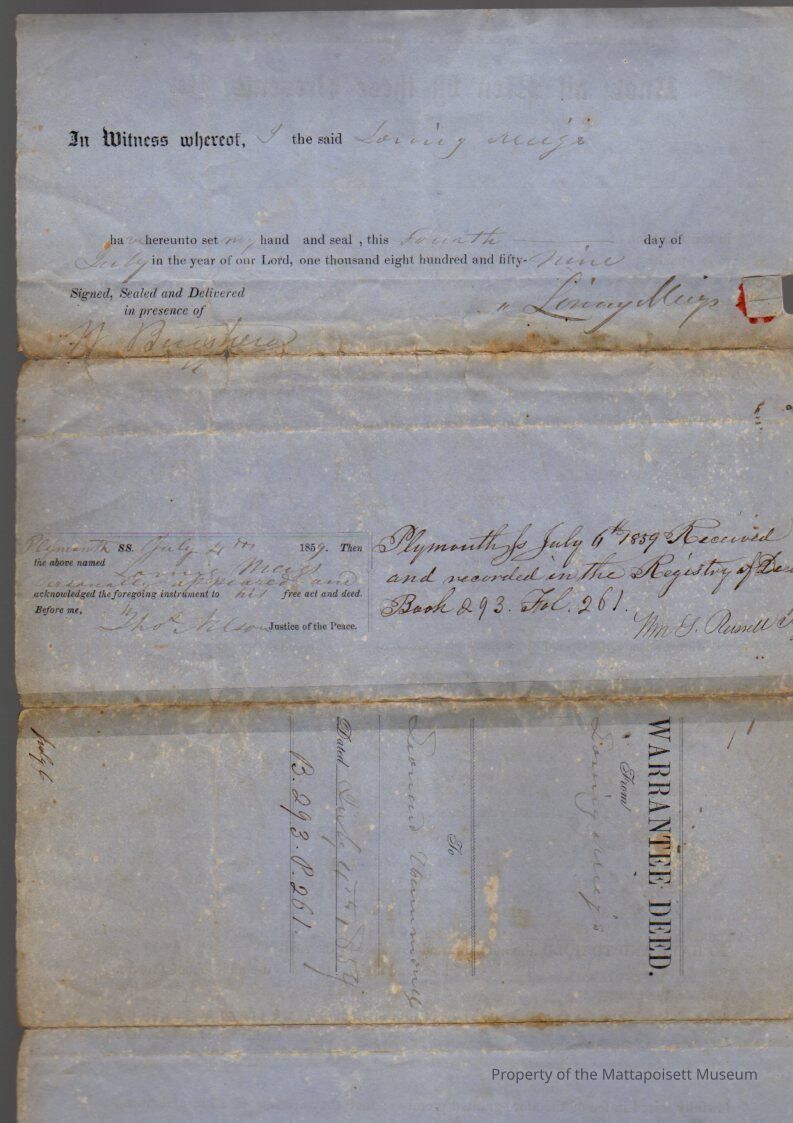 In Witness whereof, I the said Loring Meigs
have hereunto set my hand and seal , this Fourth day of
July in the year of our Lord, one thousand eight hundred and fifty-nine
Signed, Sealed and Delivered
in presence of
Loring Meigs
Plymouth SS. July 4th 1859. Then
the above named Loring Meigs
personally appeared and
acknowledged the foregoing instrument to his free act and deed.
Before me,
Thos. Nelson Justice of the Peace.
Plymouth ss July 6th 1859 Received
and recorded in the Registry of
Book 293. Fol. 261.
Wm S. Russell
WARRANTEE DEED.
From
Loring Meigs
To
Leonard Hammond
Dated July 4th 1859
B. 293. P. 261.
Property of the Mattapoisett Museum